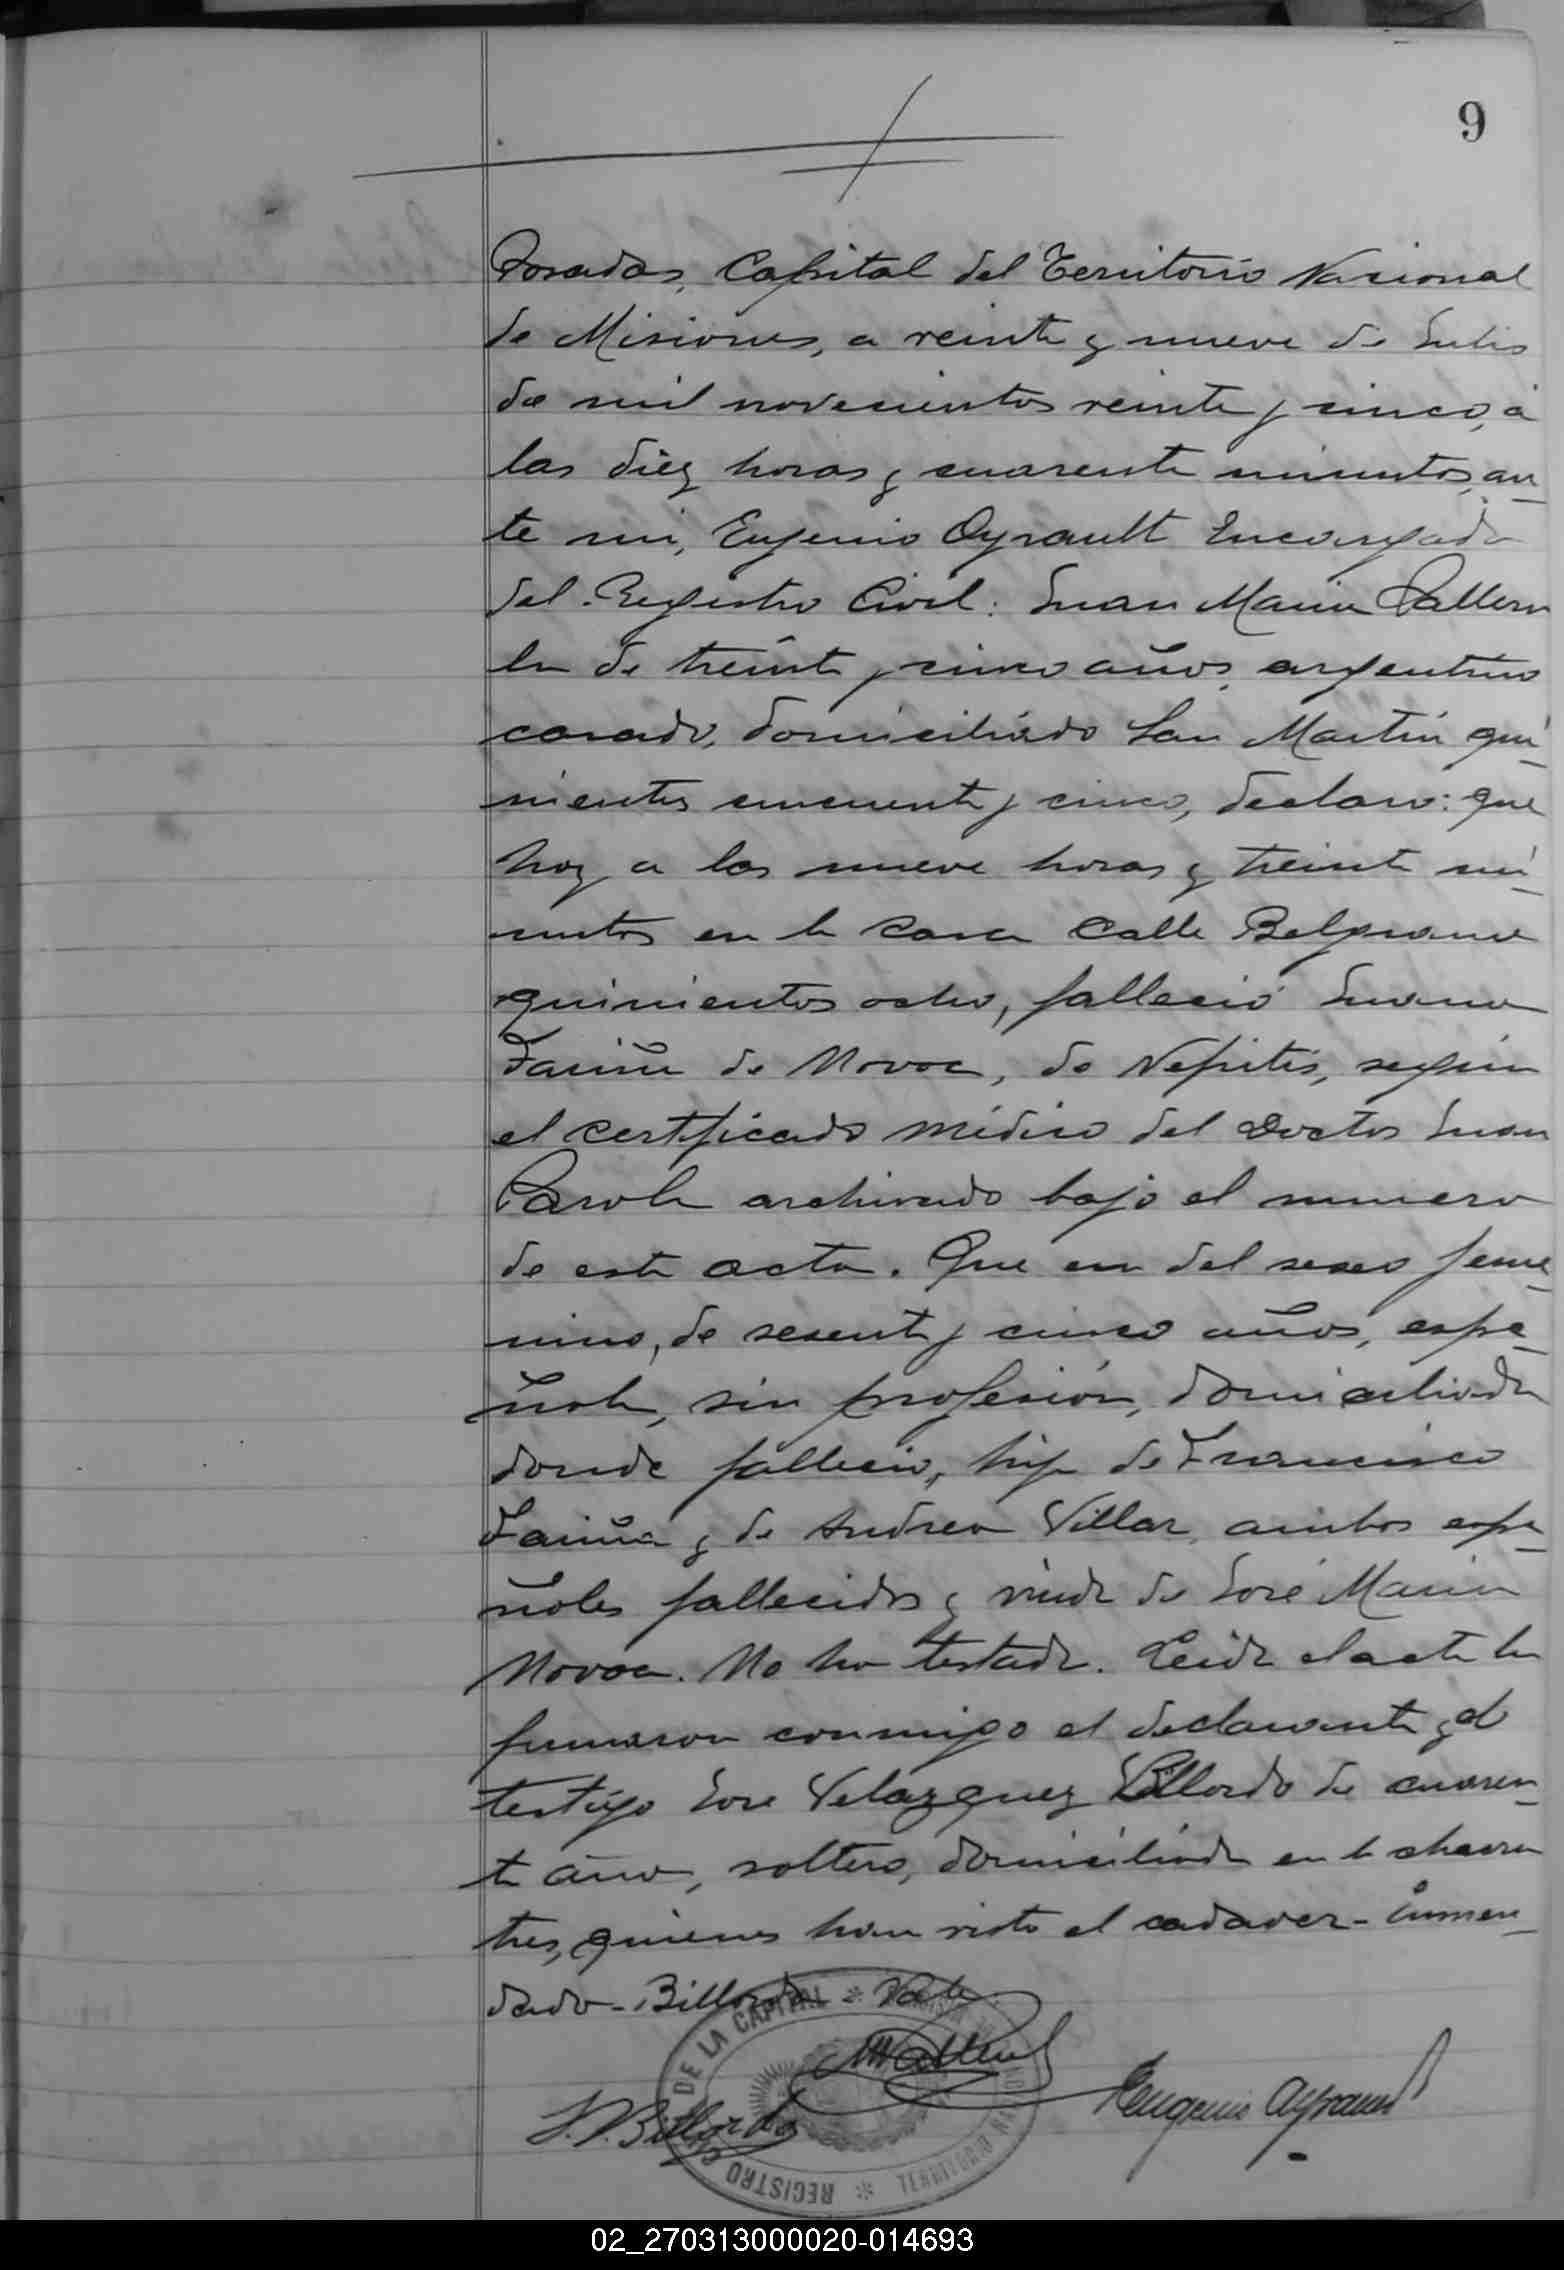 9
Posadas, Capital del Territorio Nacional
de Misiones, a veinte y nueve de Julio
de mil novecientos veinte y cinco, a
las diez horas y cuarenta minutos, an-
te mi, Eugenio Ayrault Encargado
del Registro Civil: Juan Maria
de treinta y cinco años, argentino
casado, domiciliado San Martin qui-
nientos cincuenta y cinco, declaro: que
hoy a las nueve horas y treinta mi-
nutos en la casa calle Belgrano
quinientos ocho, falleció Juana
Fariña de Novoa, de Nefritis, según
el certificado médico del Doctor Juan
Parola archivado bajo el numero
de esta acta. Que era del sexo feme-
nino, de sesenta y cinco años, espa-
ñola, sin profesión, domiciliada
donde falleció, hija de Francisco
Fariña y de Andrea Villar, ambos espa-
ñoles fallecidos y viuda de José Maria
Novoa. No ha testado. Leida el acta la
firmaron conmigo el declarante y el
testigo José Velazquez Billordo de cuaren-
ta años, soltero, domiciliado en la chacra
tres, quienes han visto el cadaver - Enmen-
dado - Billordo - Vale
J. V. Billordo
Eugenio Ayrault
REGISTRO CIVIL DE LA CAPITAL * TERRITORIO NACIONAL
02_270313000020-014693